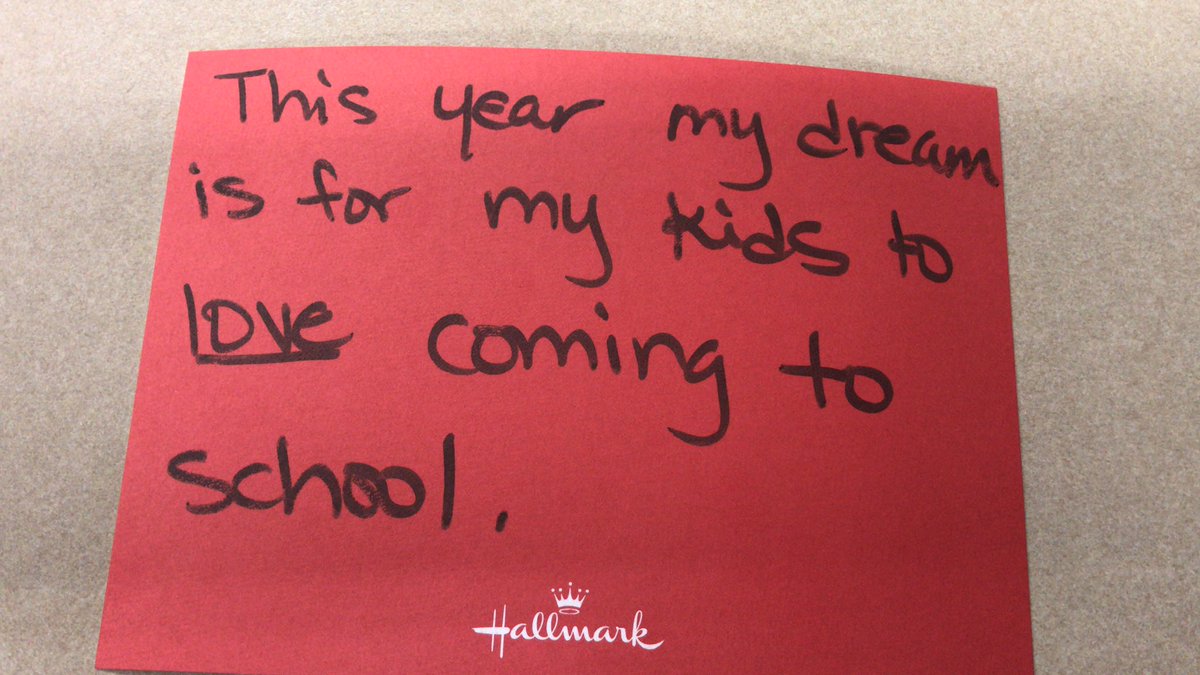 This year my dream
is for my kids to
love coming to
school.
Hallmark